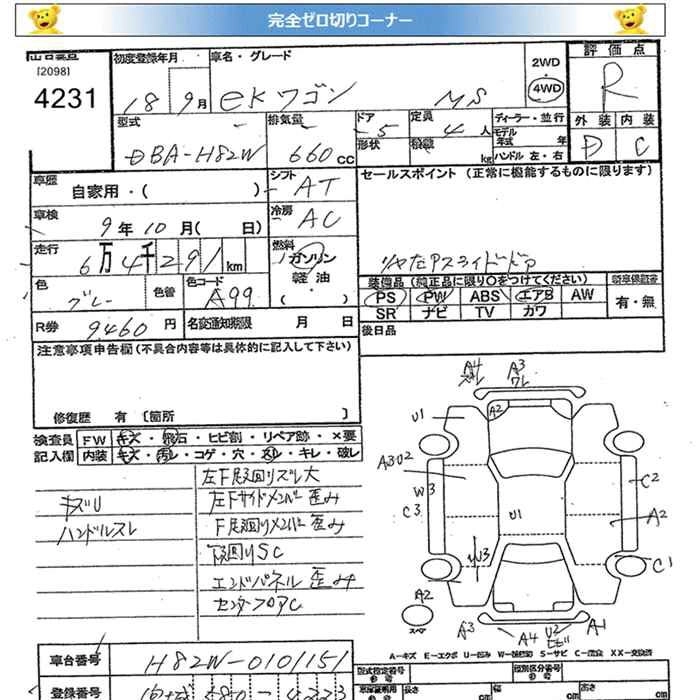 完全ゼロ切りコーナー
[2098]
4231
初度登録年月
18 9月
車名・グレード
eKワゴン MS
2WD
4WD
評価点
R
型式
DBA-H82W
排気量
660 cc
ドア
5
形状
定員
4人
積載
kg
ディーラー・並行
モデル年式 年
ハンドル 左・右
外装 内装
D C
車歴
自家用・( )
シフト
AT
車検
9年10月( 日)
冷房
AC
走行
6万4千291km
燃料
ガソリン
軽油
・( )
色
グレー
色替
色コード
A99
R券
9460円
名変通知期限 月 日
セールスポイント(正常に機能するものに限ります)
リヤ左スライドドア
装備品(純正品に限り○をつけてください)
PS PW ABS エアB AW
SR ナビ TV カワ
新車保証書
有・無
後日品
注意事項申告欄(不具合内容等は具体的に記入して下さい)
修復歴 有 [箇所 ]
検査員
記入欄
FW キズ・飛石・ヒビ割・リペア跡・×要
内装 キズ・汚レ・コゲ・穴・スレ・キレ・破レ
キズU
ハンドルスレ
左F足廻りズレ大
左Fサイドメンバー歪み
F足廻りメンバー歪み
下廻りSC
エンドパネル歪み
センターフロアC
A4
A3
ワレ
A2
U1
A3U2
W3
C3
U1
C2
A2
W3
C1
A2
スペア
A3
A4
U2
A1
A-キズ E-エクボ U-凹み W-補修跡 S-サビ C-腐食 XX-交換済
車台番号
H82W-0101151
登録番号
型式指定番号
類別区分番号
長さ cm
幅 cm
高さ cm